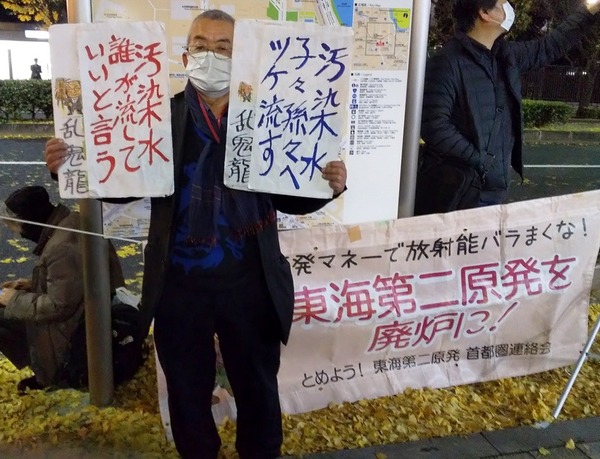 汚染水
誰が流して
いいと言う
乱鬼龍
汚染水
子々孫々へ
ツケ流す
乱鬼龍
発マネーで放射能バラまくな!
東海第二原発を
廃炉に!
とめよう! 東海第二原発 首都圏連絡会